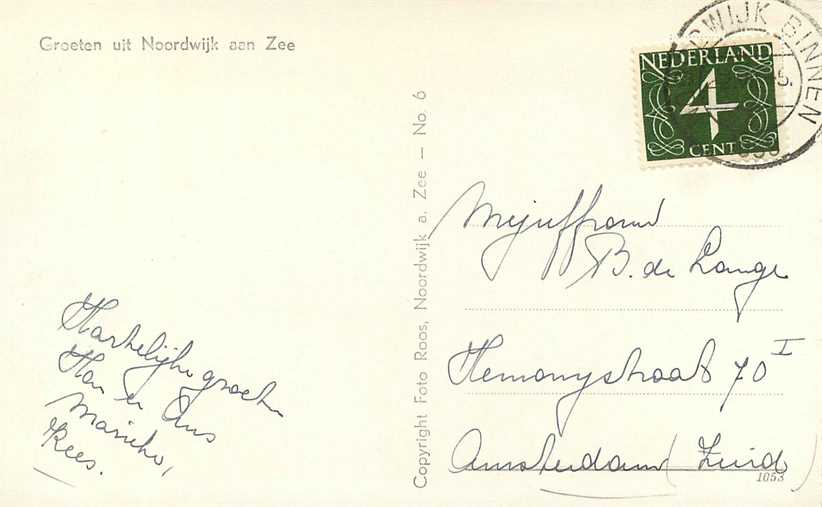 Groeten uit Noordwijk aan Zee
NEDERLAND
4
CENT
WIJK BINNEN
Copyright Foto Roos, Noordwijk a. Zee — No. 6
Mejuffrouw
B. de Lange
Hemonystraat 70 I
Amsterdam (Zuid)
1053
Hartelijke groeten
Han en Ans
Marieke,
Kees.